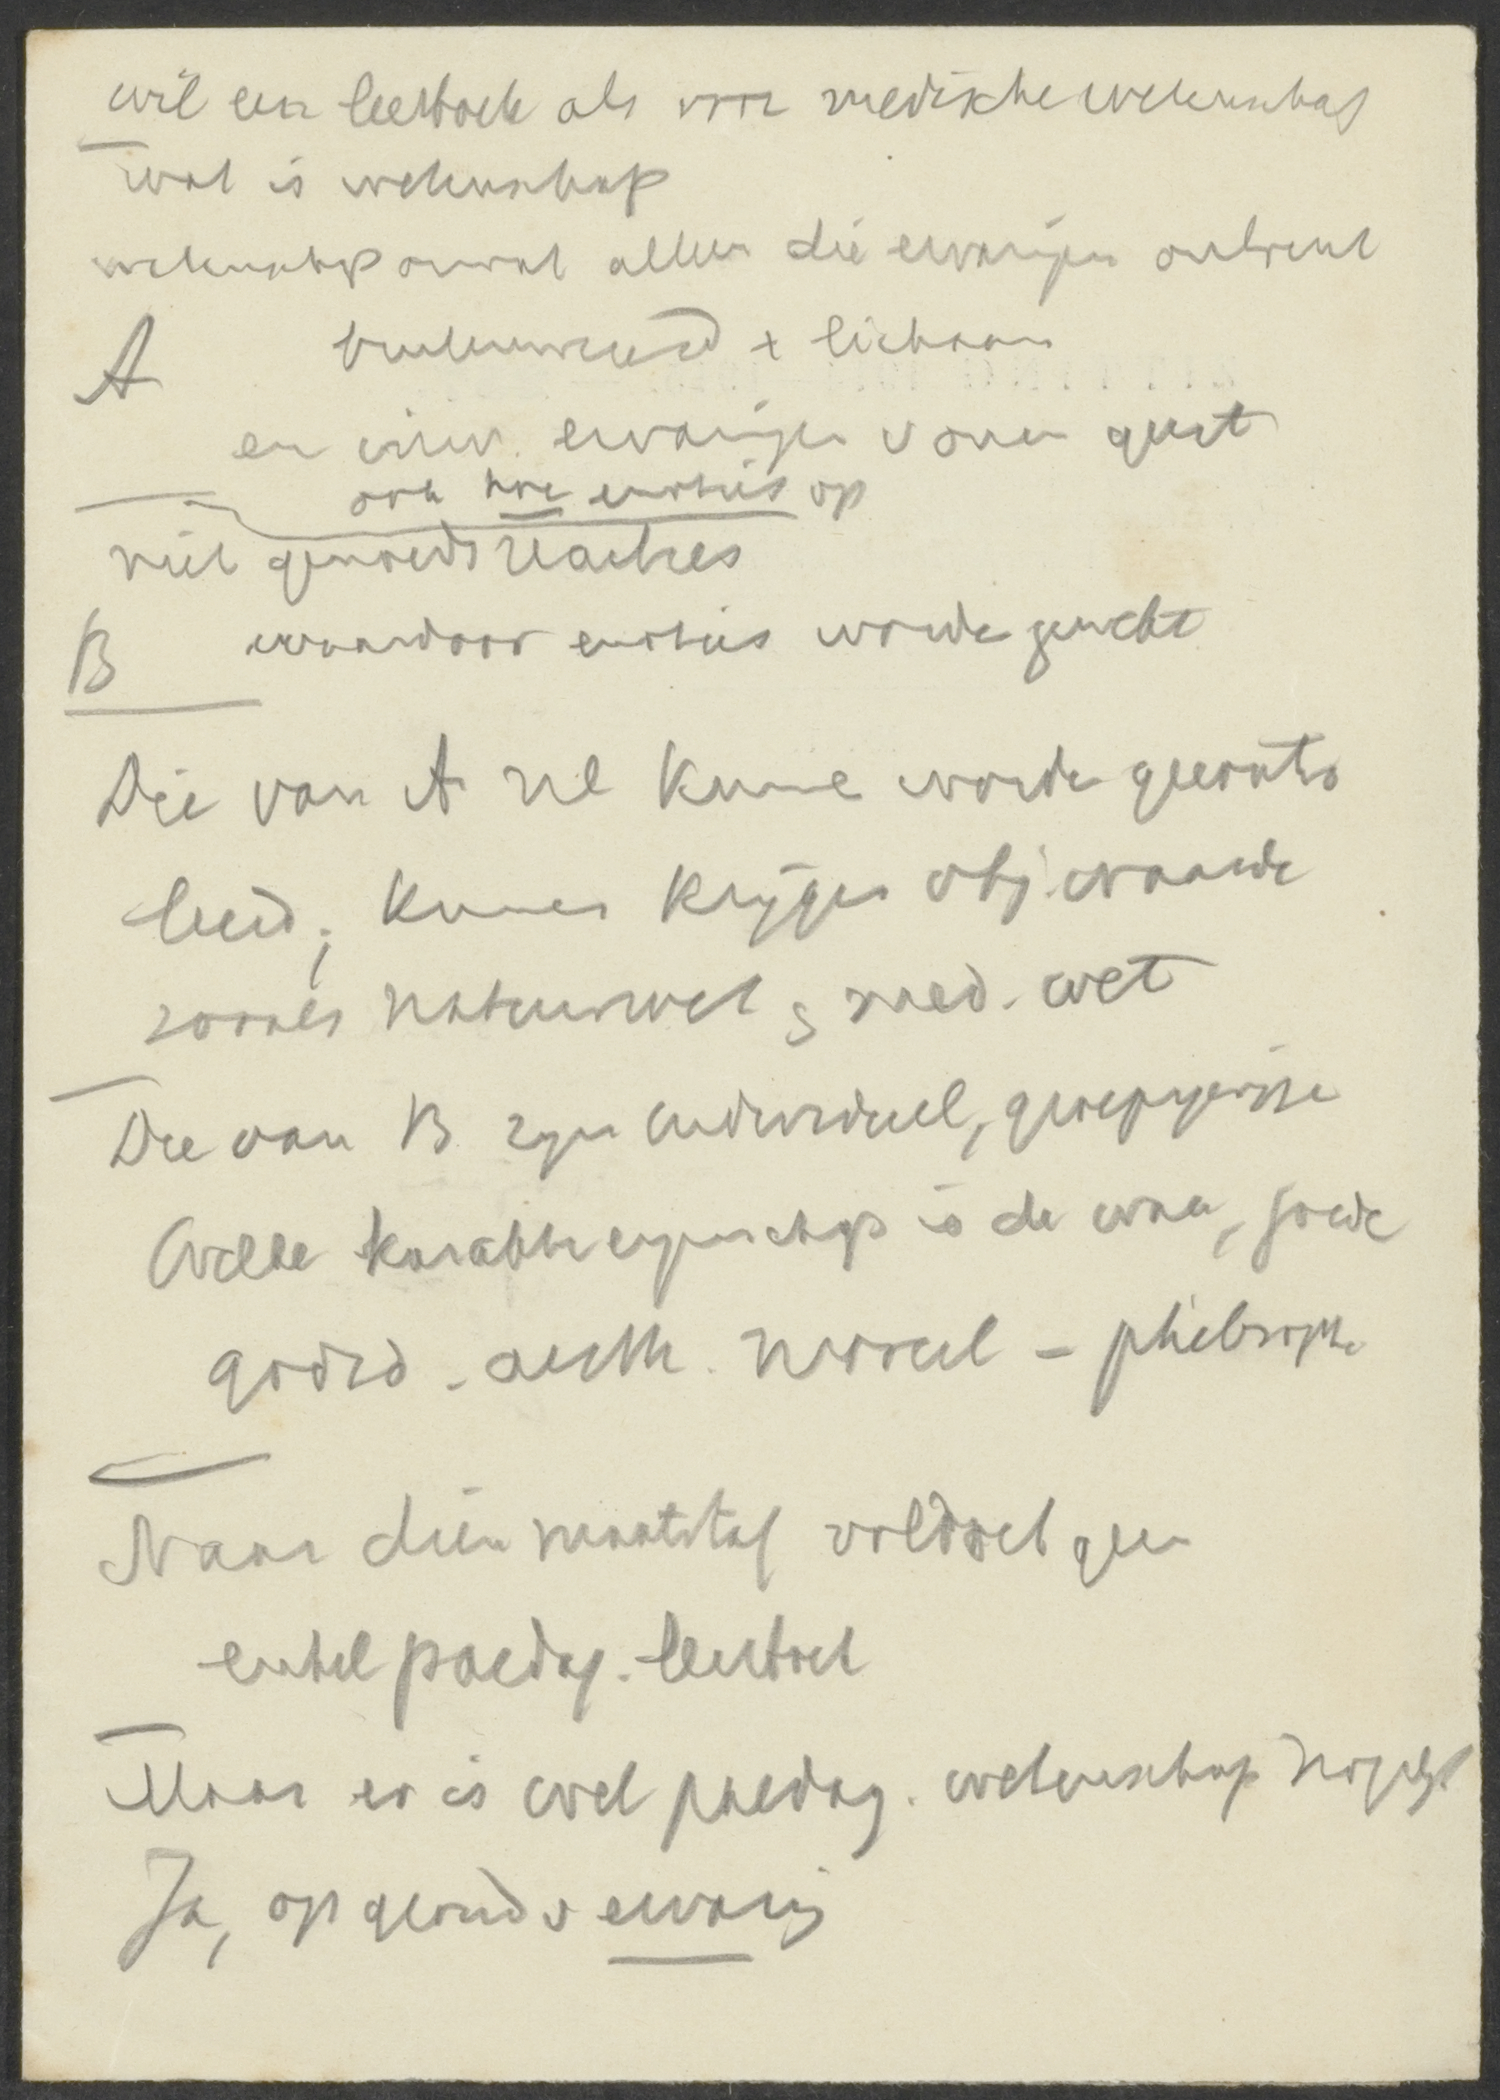 wil een leerboek als voor medische wetenschap
wat is wetenschap
wetenschap omvat alleen die ervaringen omtrent
A buitenwereld + lichaam
en ervaringen v onzen geest
ook hoe emoties op
niet gemoedsreacties
B waardoor emoties worde gewekt
Die van A zul kunne worde gecontro
leerd; kunnen krijgen obj. waarde
zooals natuurwet & med. wet
Die van B zijn individueel, groepsgewijse
Welke karaktereigenschap is de ware, goede
godsd. aesth. moreel - philosoph
Naar dien maatstaf voldoet geen
enkel paedag. leerboek
Maar er is wel paedag. wetenschap mogelijk
Ja, op grond v ervaring